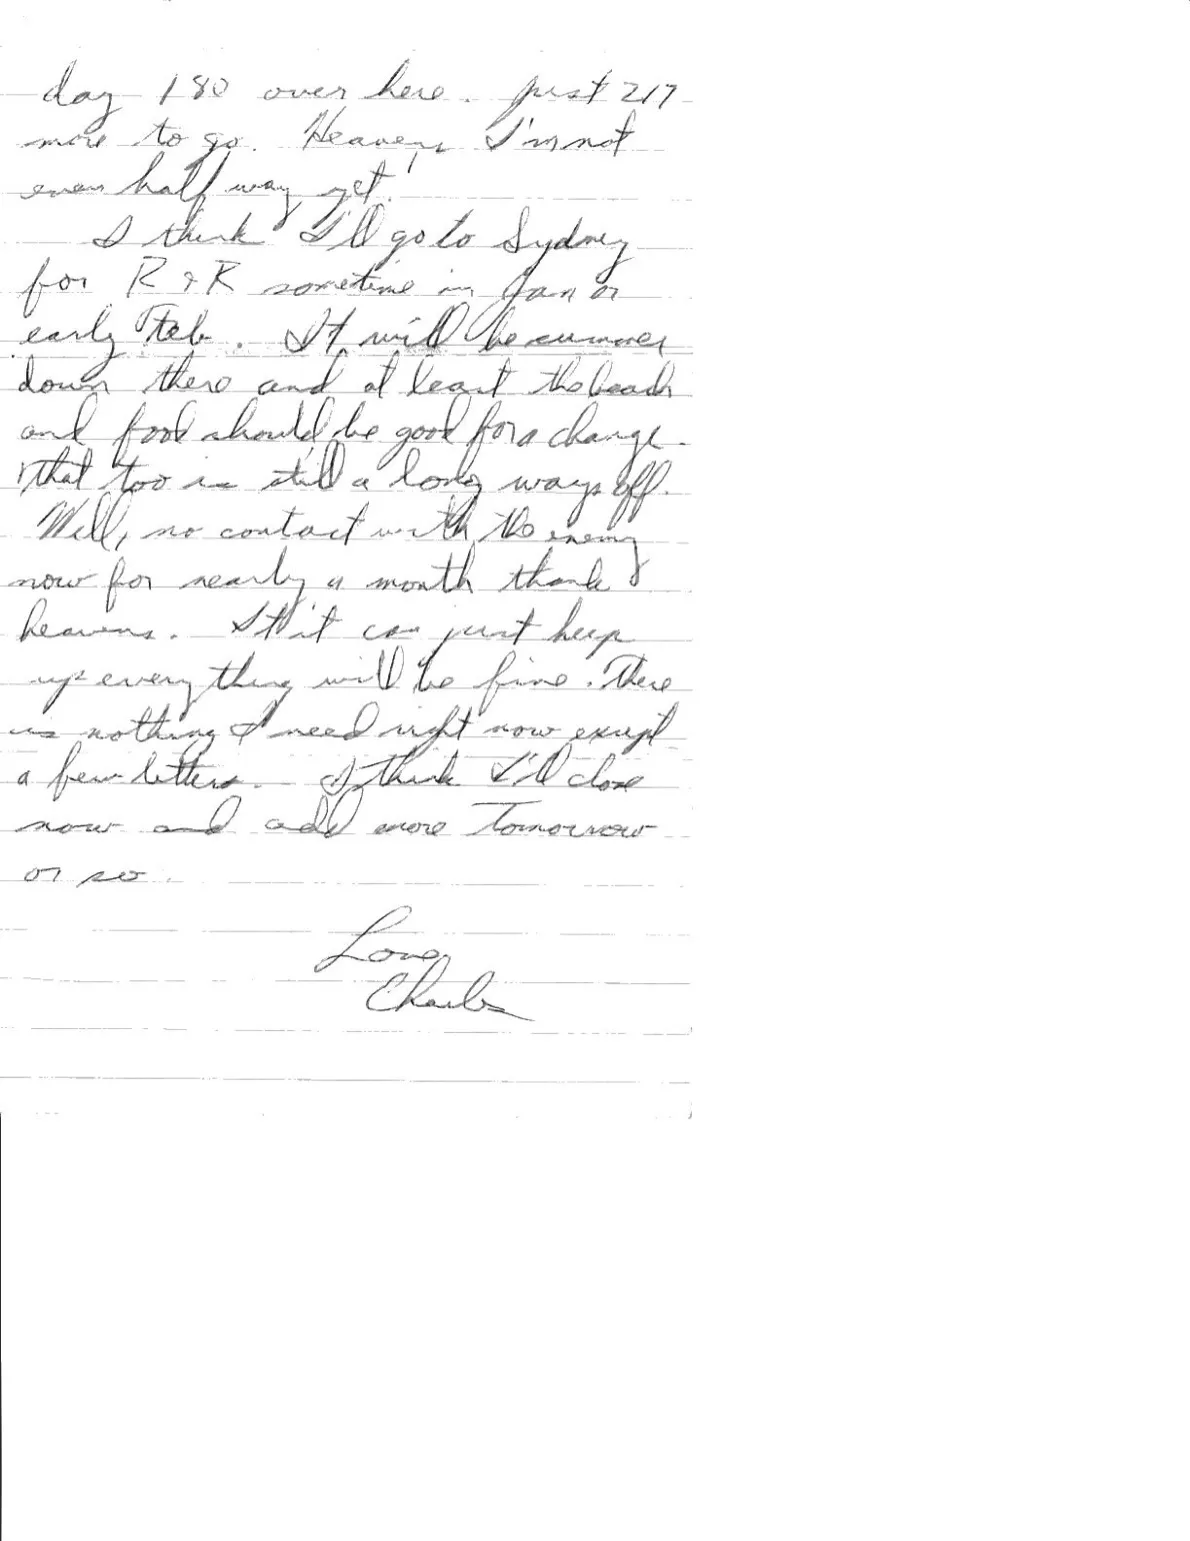 day 180 over here. Just 217
more to go. Heavens I'm not
even half way yet!
I think I'll go to Sydney
for R & R sometime in Jan or
early Feb. It will be summer
down there and at least the beach
and food should be good for a change.
That too is still a long ways off.
Well, no contact with the enemy
now for nearly a month thank
heavens. If it can just keep
up everything will be fine. There
is nothing I need right now except
a few letters. I think I'll close
now and add more Tomorrow
or so.
Love,
Charles